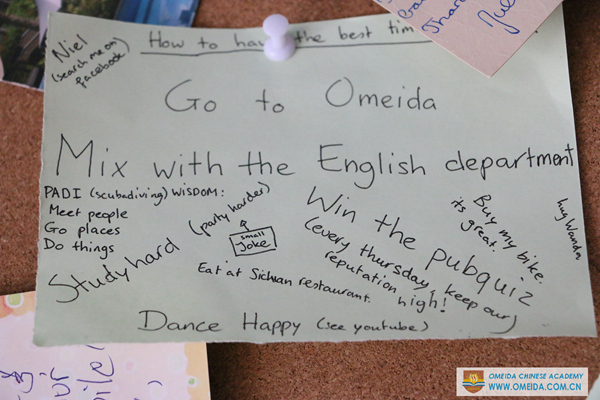 Niel
(search me on
facebook)
How to have the best tim
Go to Omeida
Mix with the English department
PADI (scubadiving) WISDOM:
Meet people
Go places
Do things
Study hard
(party harder)
small
joke
Win the pubquiz
(every thursday, keep our
reputation high!)
Buy my bike.
its great.
hug Wanda
Eat at Sichuan restaurant.
Dance Happy (see youtube)
OMEIDA CHINESE ACADEMY
WWW.OMEIDA.COM.CN